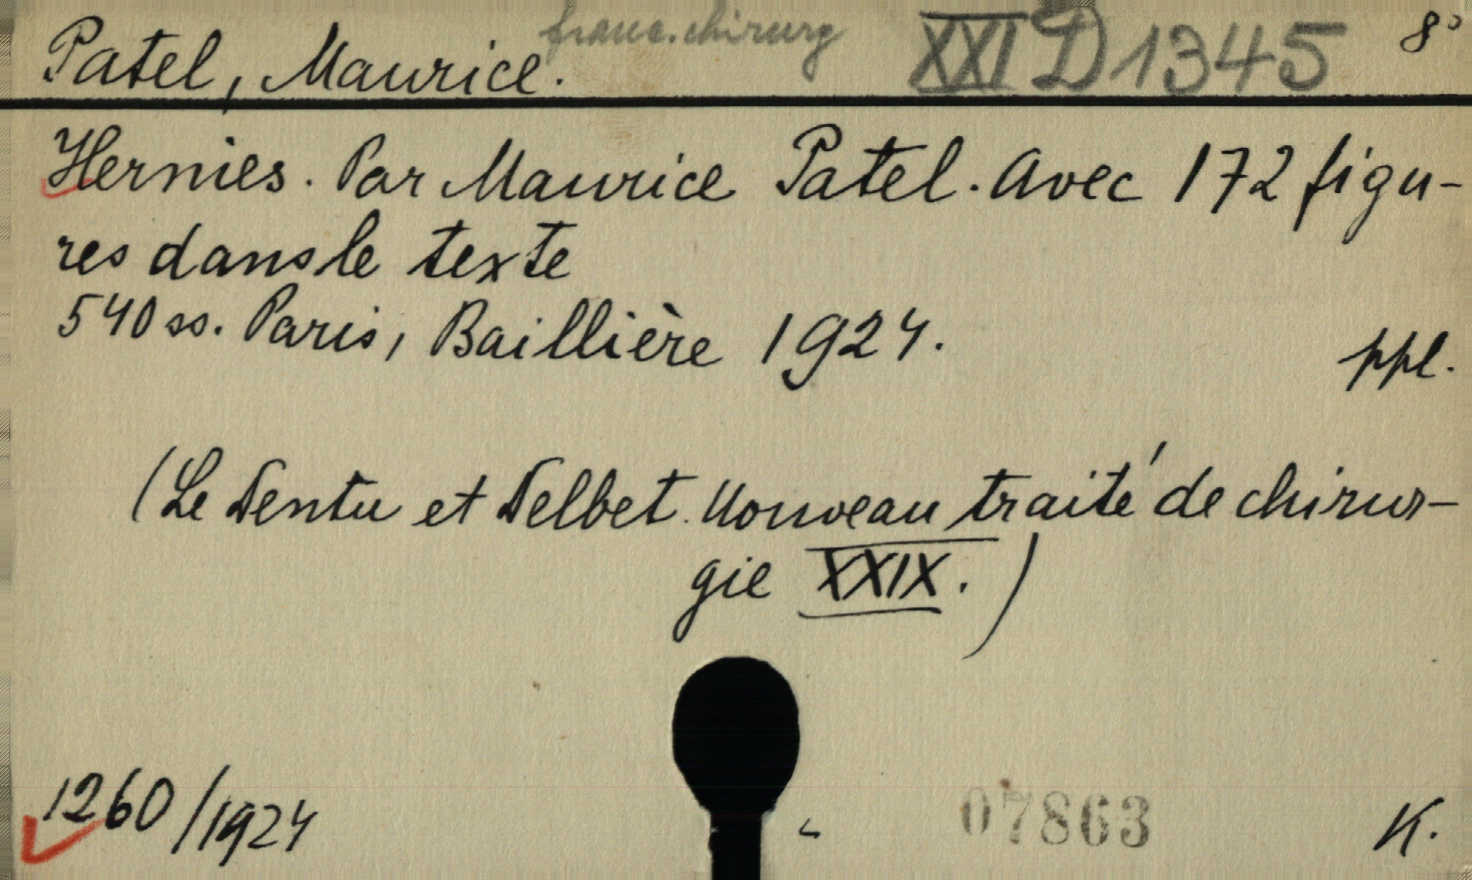 Patel, Maurice. franc. chirurg XXI D 1345 8°
Hernies. Par Maurice Patel. Avec 172 figu-
res dans le texte
540 ss. Paris, Baillière 1924.
ppl.
(Le Dentu et Delbet. Nouveau traité de chirur-
gie XXIX.)
1260/1924 07863 K.